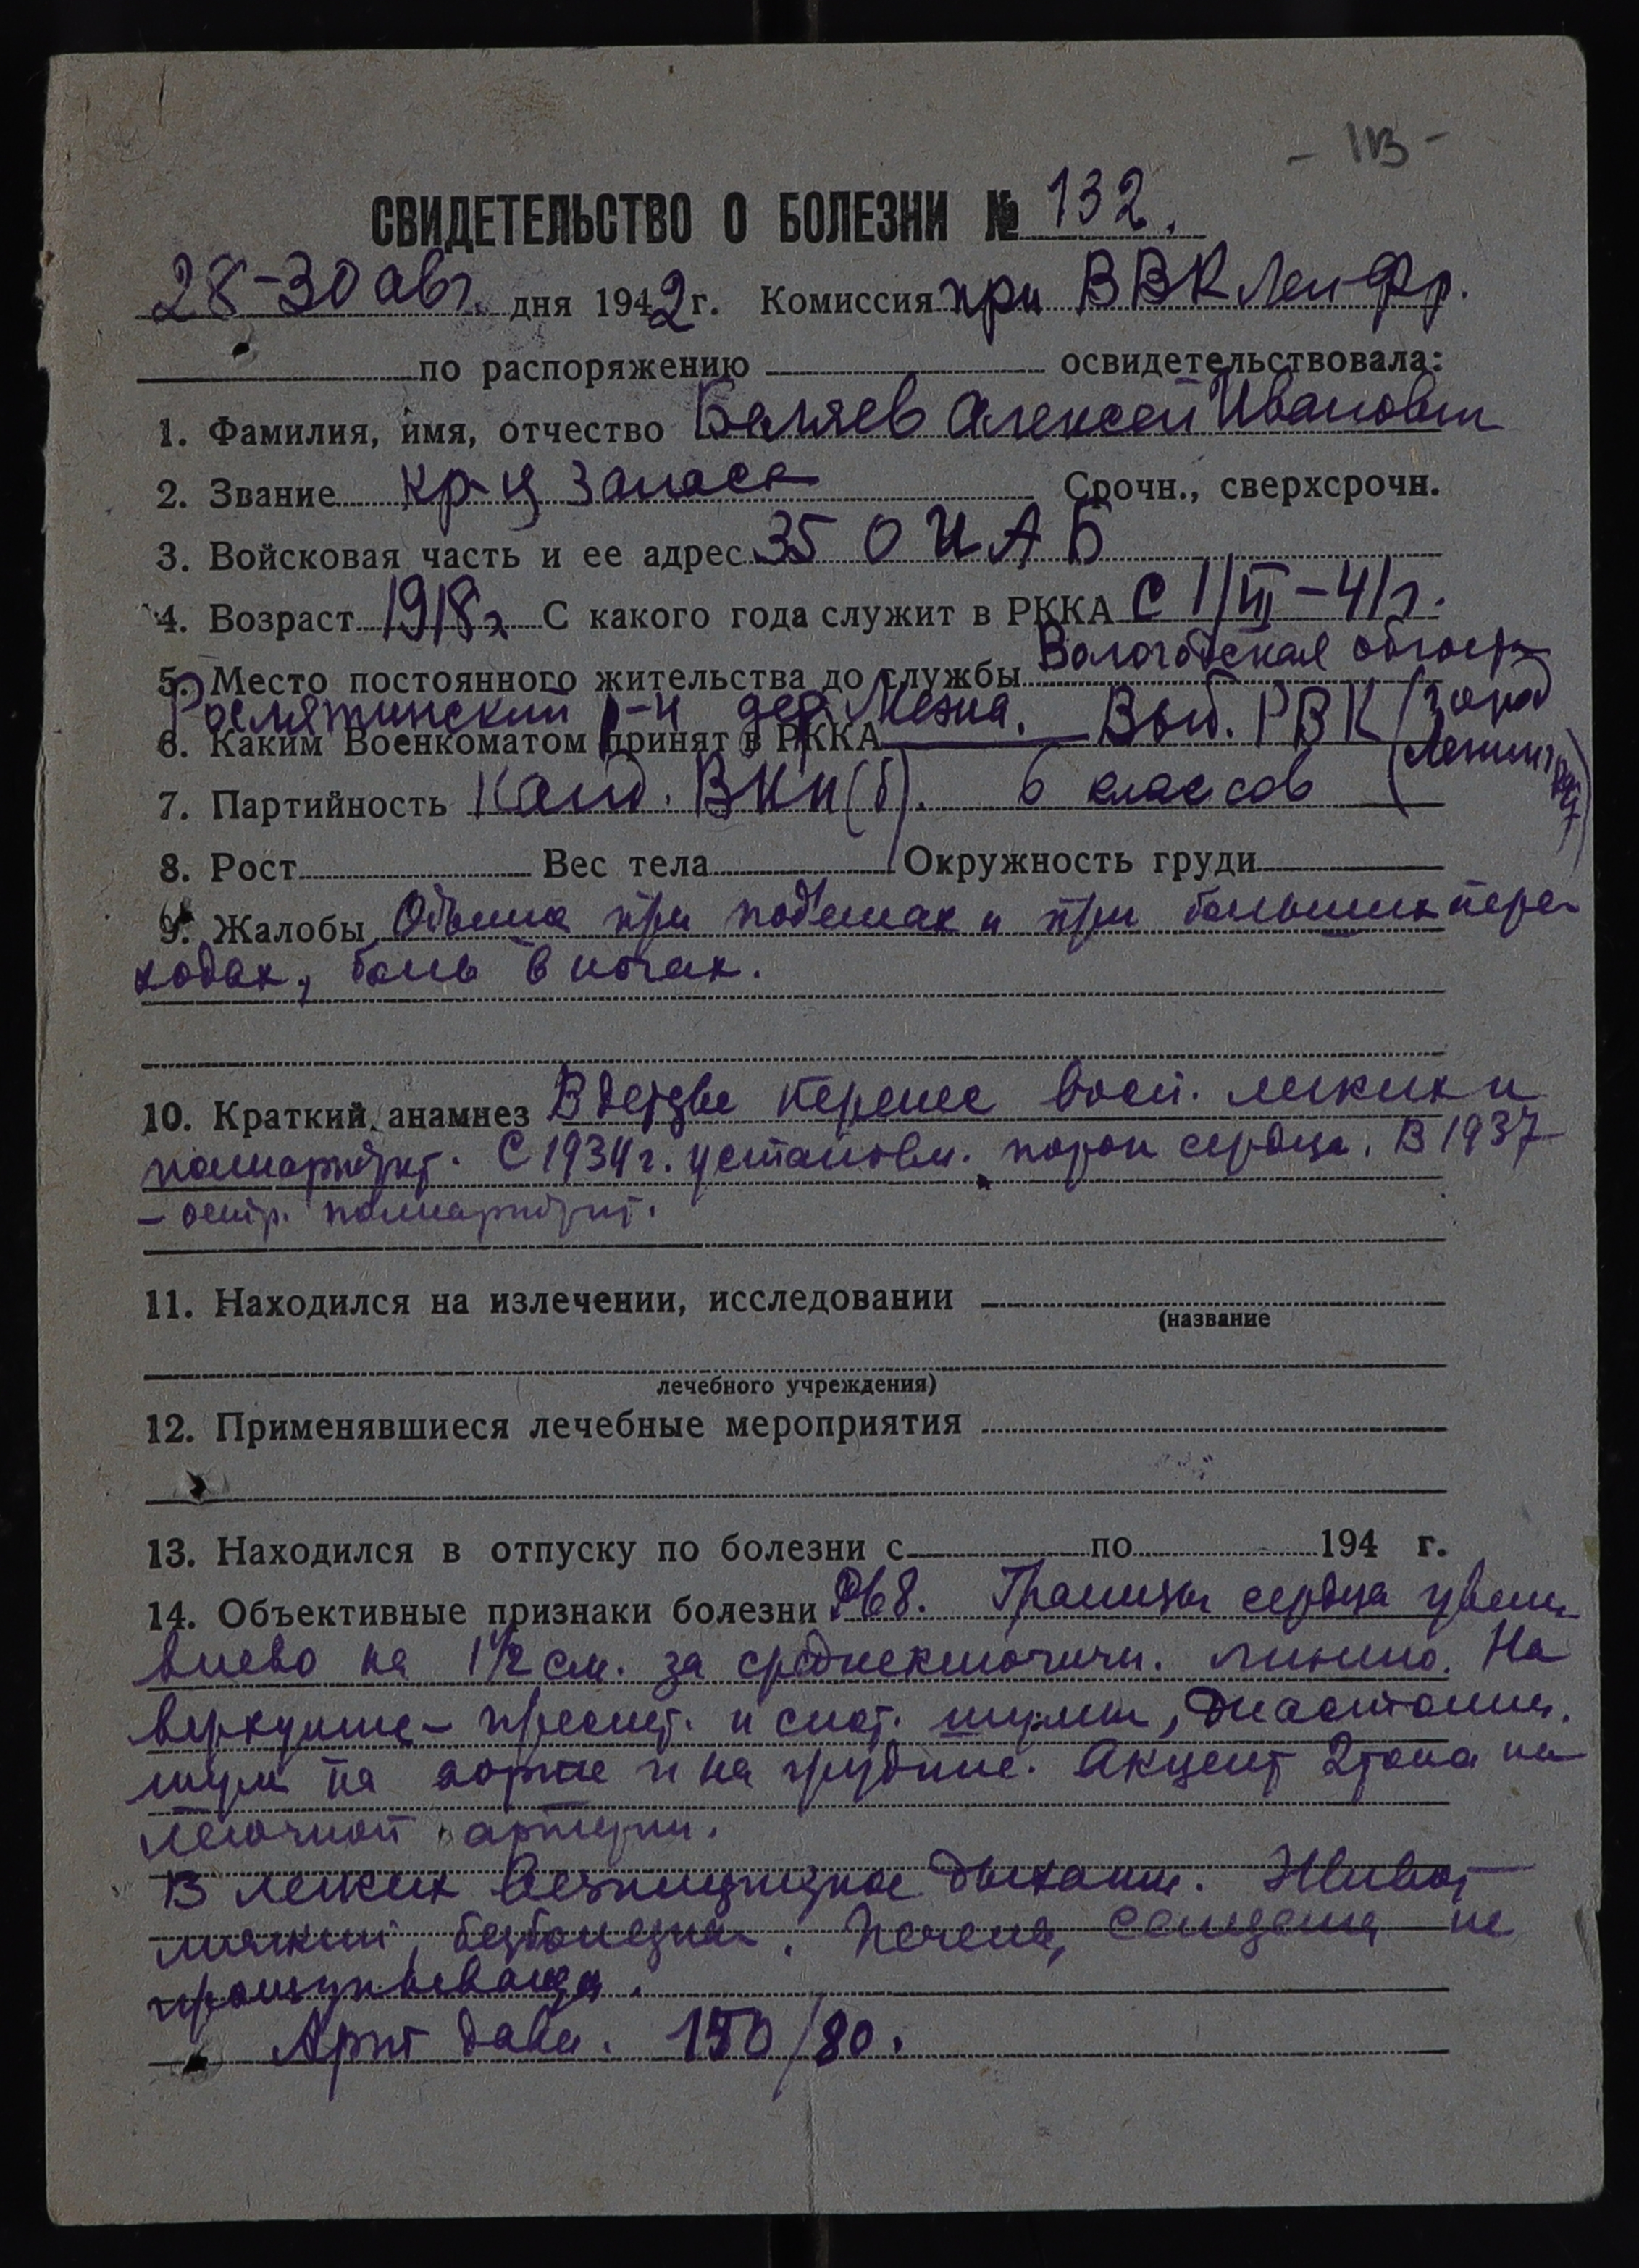 - 113 -
СВИДЕТЕЛЬСТВО О БОЛЕЗНИ № 132.
28-30 авг. дня 1942 г. Комиссия при ВВК Лен Фр.
по распоряжению освидетельствовала:
1. Фамилия, имя, отчество Беляев Алексей Иванович
2. Звание кр-ц запаса Срочн., сверхсрочн.
3. Войсковая часть и ее адрес 35 О И А Б
4. Возраст 1918 г. С какого года служит в РККА с 1/VII-41 г.
5. Место постоянного жительства до службы Вологодская область
Рослятинский р-н дер. Межна.
6. Каким Военкоматом принят в РККА Выб. РВК (город Ленинград)
7. Партийность Канд. ВКП(б). 6 классов
8. Рост Вес тела Окружность груди
9. Жалобы Одышка при подъемах и при больших пере-
ходах, боль в ногах.
10. Краткий анамнез В детстве перенес восп. легких и
полиартрит. С 1934 г. установл. порок сердца. В 1937
- остр. полиартрит.
11. Находился на излечении, исследовании
(название
лечебного учреждения)
12. Применявшиеся лечебные мероприятия
13. Находился в отпуску по болезни с по 194 г.
14. Объективные признаки болезни 68. Границы сердца увелич
влево на 1 1/2 см. за среднеключичн. линию. На
верхушке - пресист. и сист. шумы, диастолич.
шум на аорте и на грудине. Акцент 2 тона на
легочной артерии.
В легких везикулярное дыхание. Живот
мягкий, безболезнен. Печень, селезенка не
прощупываются.
Арт давл. 150/80.